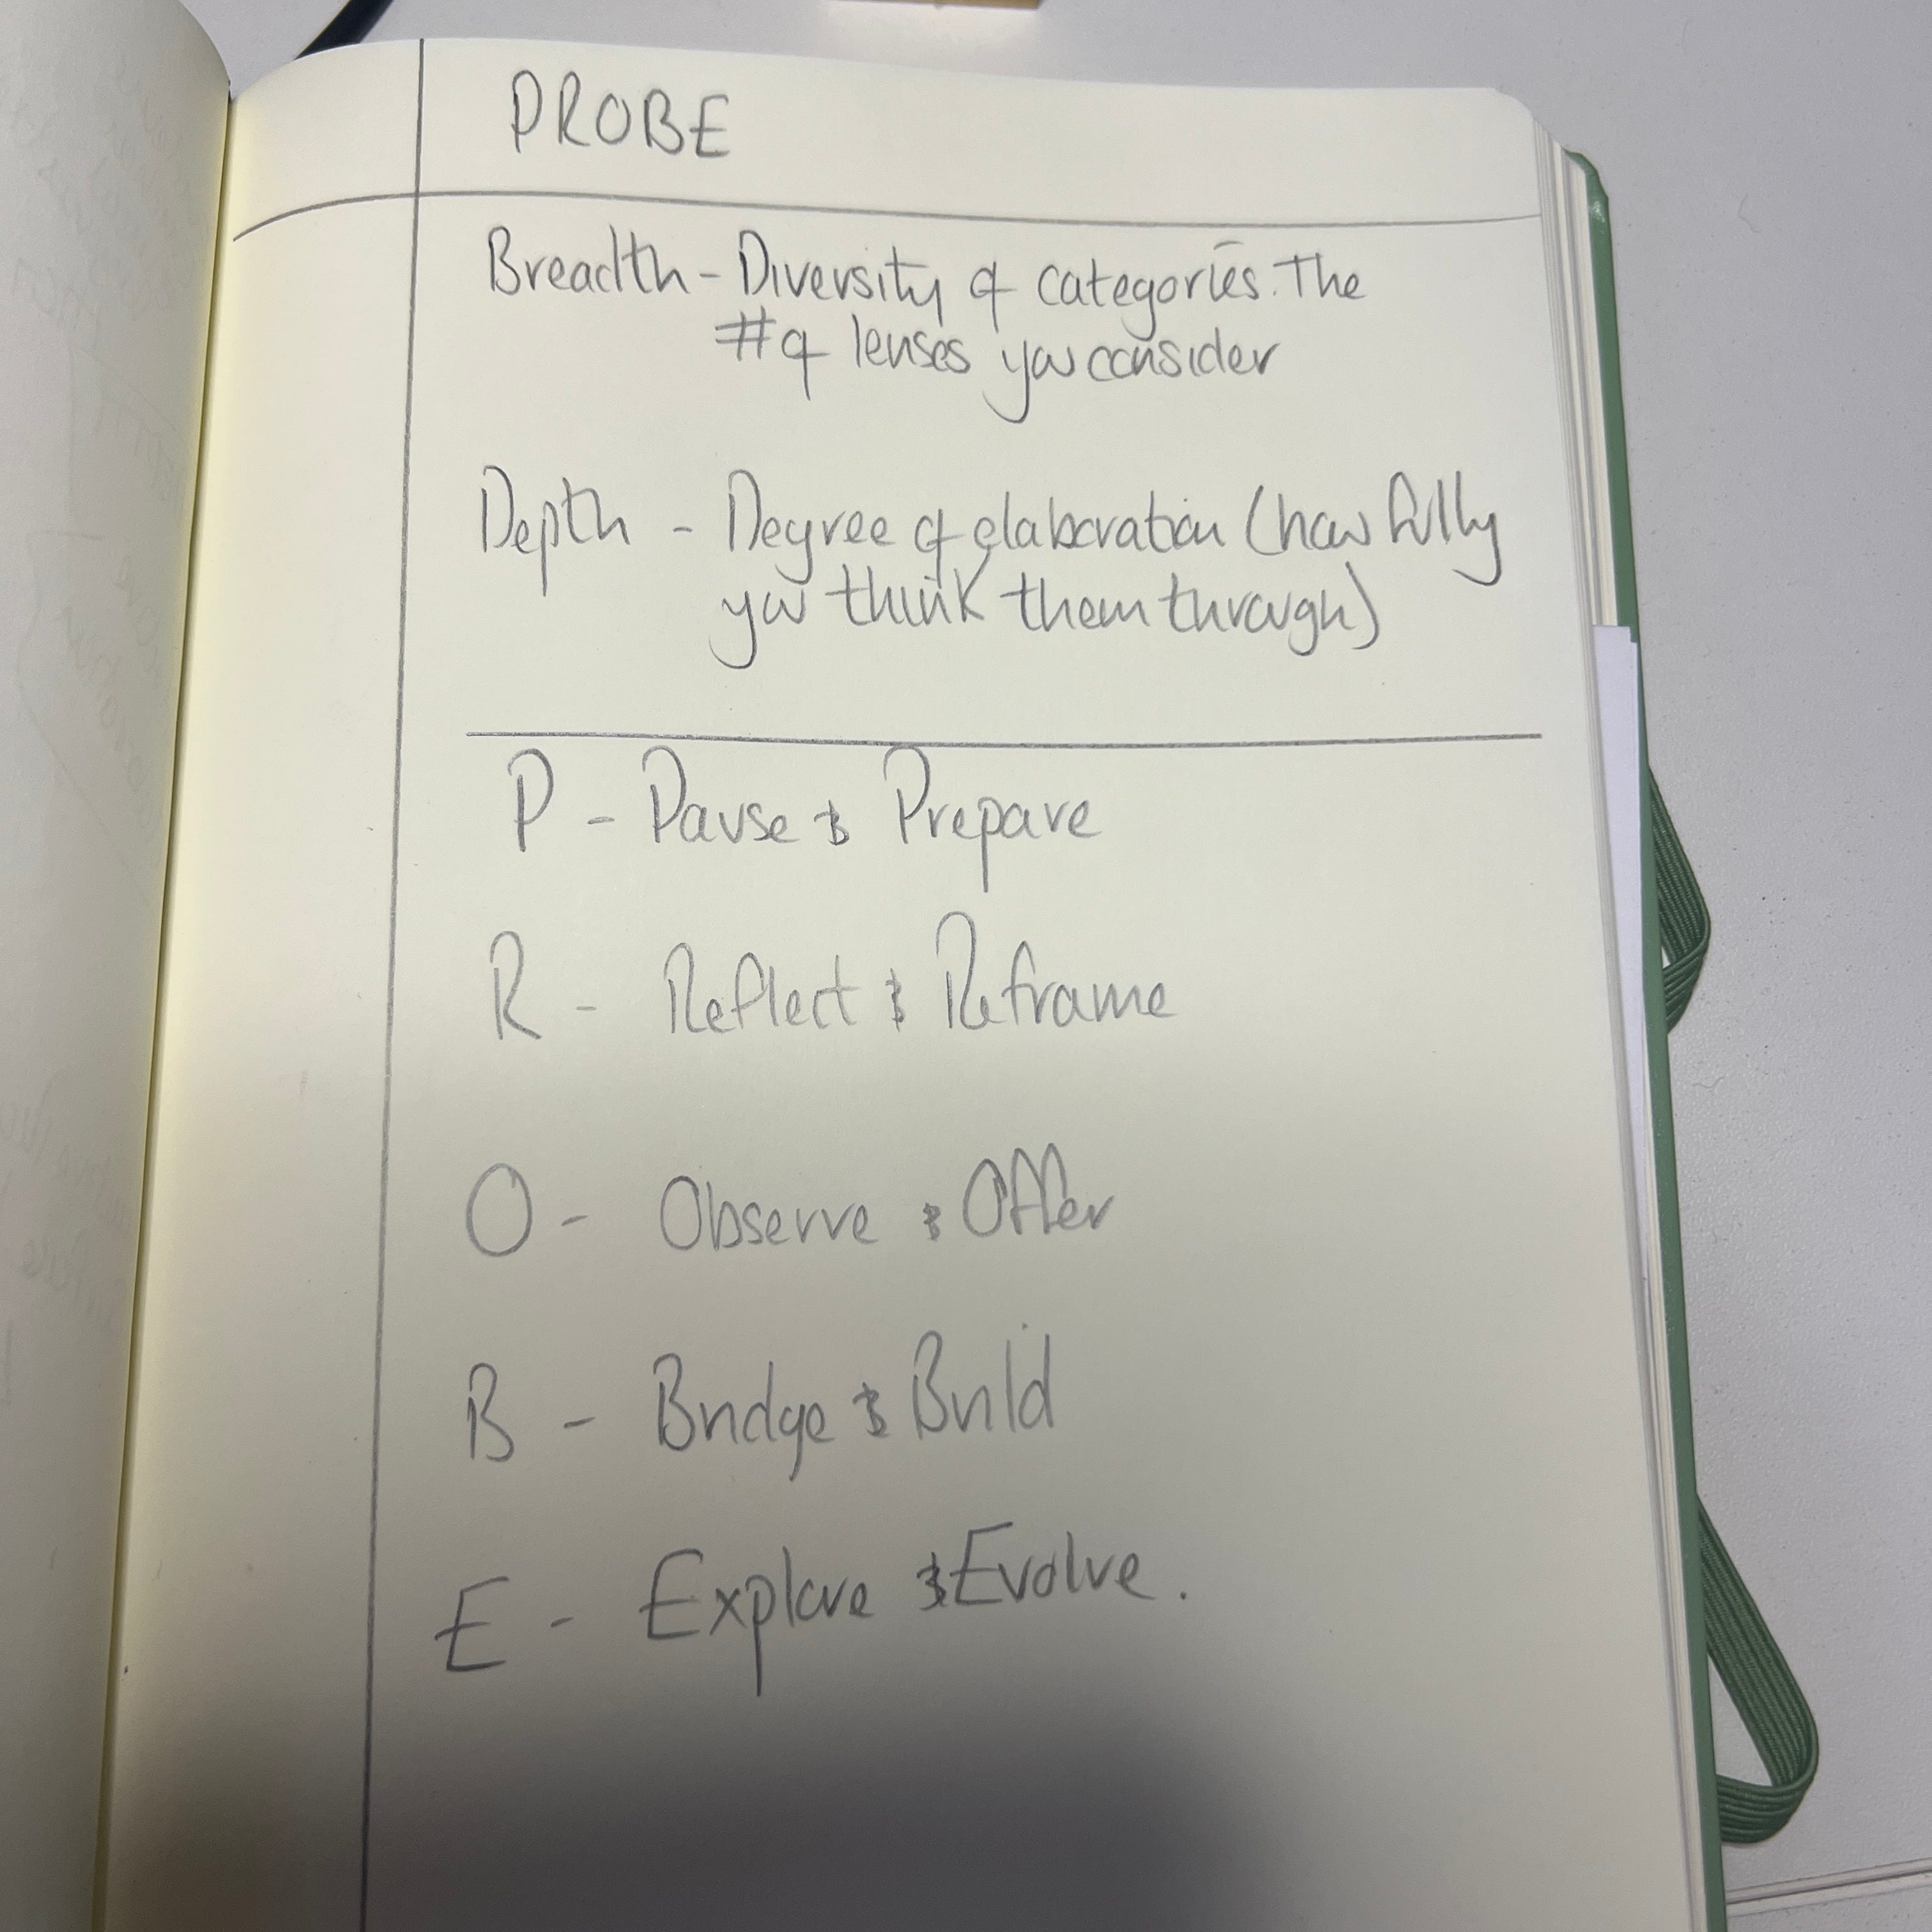 PROBE
Breadth - Diversity of categories. The
# of lenses you consider
Depth - Degree of elaboration (how fully
you think them through)
P - Pause & Prepare
R - Reflect & Reframe
O - Observe & Offer
B - Bridge & Build
E - Explore & Evolve.